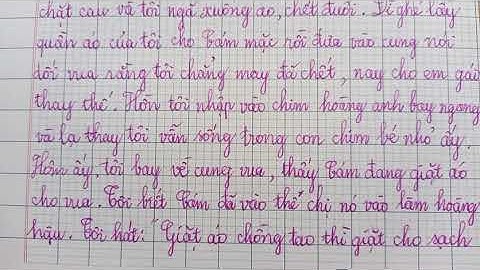 chặt cau và tôi ngã xuống ao, chết đuối. Dì ghẻ lấy
quần áo của tôi cho Cám mặc rồi đưa vào cung nói
dối vua rằng tôi chẳng may đã chết, nay cho em gái
thay thế. Hồn tôi nhập vào chim hoàng anh bay ngang
và lạ thay tôi vẫn sống trong con chim bé nhỏ ấy.
Hôm ấy, tôi bay về cung vua, thấy Cám đang giặt áo
cho vua. Tôi biết Cám đã vào thế chị nó vào làm hoàng
hậu. Tôi hát: "Giặt áo chồng tao thì giặt cho sạch